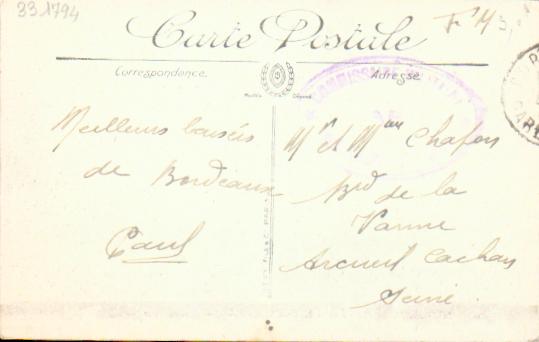 331794
F M
Carte Postale
Correspondance.
Adresse.
Modèle Déposé
COMMISSAIRE
GARE
Meilleurs baisers
de Bordeaux
Paul
Mr et Mme Chafon
Brd de la
Vanne
Arcueil Cachan
Seine